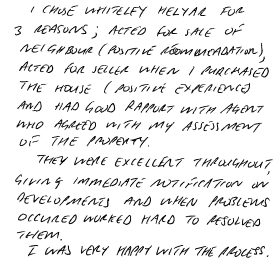 I CHOSE WHITELEY HELYAR FOR
3 REASONS; ACTED FOR SALE OF
NEIGHBOUR (POSITIVE RECOMMENDATION),
ACTED FOR SELLER WHEN I PURCHASED
THE HOUSE (POSITIVE EXPERIENCE)
AND HAD GOOD RAPPORT WITH AGENT
WHO AGREED WITH MY ASSESSMENT
OF THE PROPERTY.
THEY WERE EXCELLENT THROUGHOUT,
GIVING IMMEDIATE NOTIFICATION ON
DEVELOPMENTS AND WHEN PROBLEMS
OCCURED WORKED HARD TO RESOLVED
THEM.
I WAS VERY HAPPY WITH THE PROCESS.